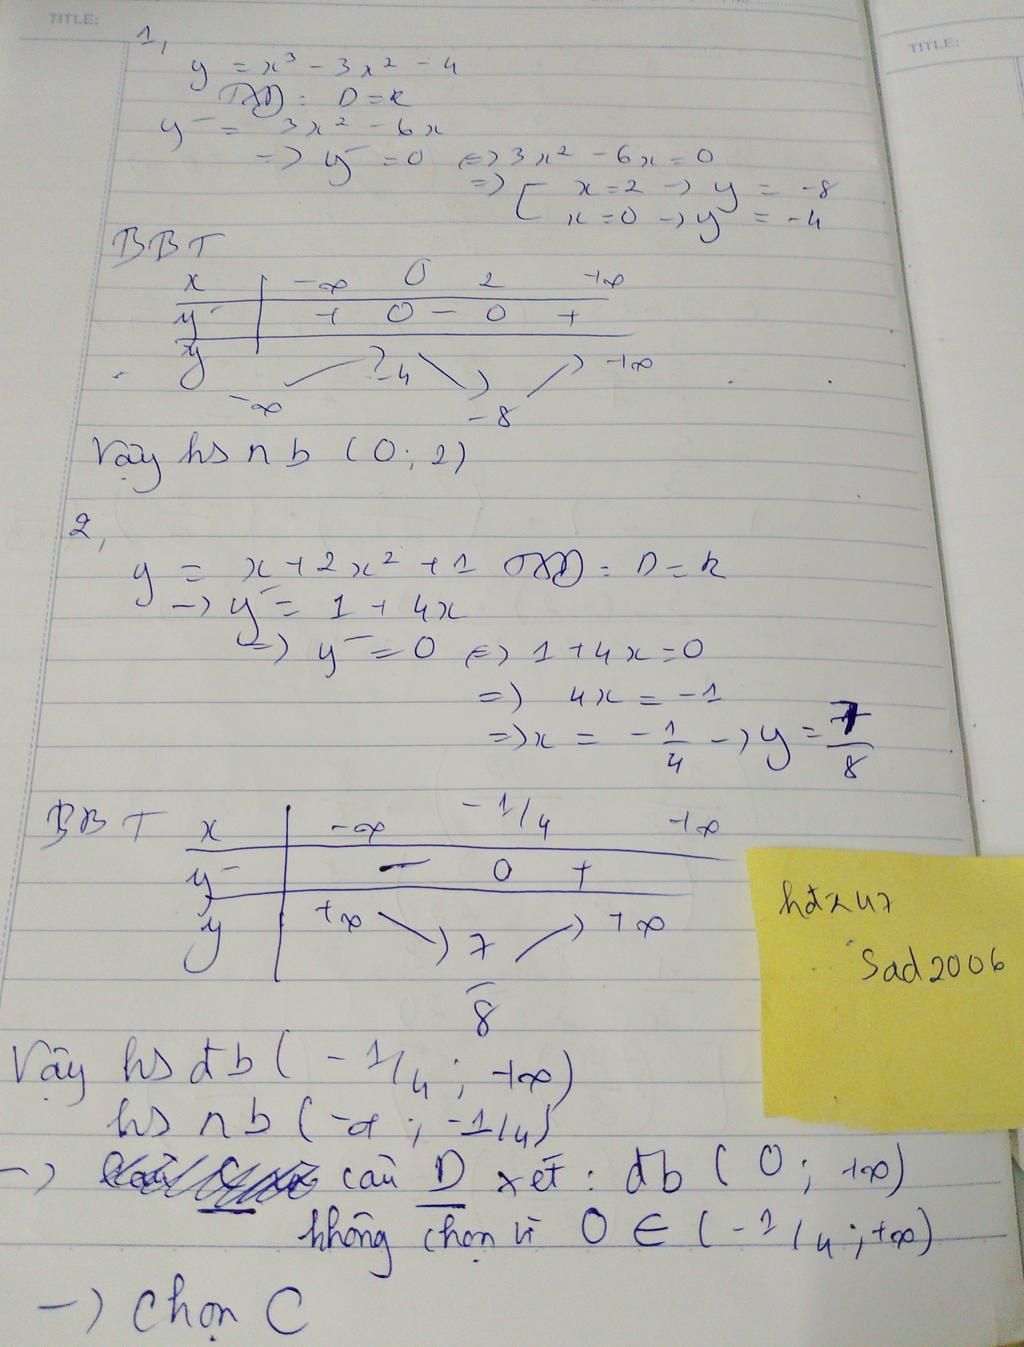 TITLE:
TITLE:
1,
y = x³ - 3x² - 4
TXĐ: D = R
y' = 3x² - 6x
=> y' = 0 <=> 3x² - 6x = 0
=> [ x = 2 -> y = -8
x = 0 -> y = -4
BBT
x | -∞ 0 2 +∞
y' | + 0 - 0 +
y | -∞ -4 -8 +∞
Vậy hs nb (0; 2)
2,
y = x + 2x² + 1 TXĐ: D = R
-> y' = 1 + 4x
=> y' = 0 <=> 1 + 4x = 0
=> 4x = -1
=> x = -1/4 -> y = 7/8
BBT x | -∞ -1/4 +∞
y' | - 0 +
y | +∞ 7/8 +∞
Vậy hs đb (-1/4; +∞)
hs nb (-∞; -1/4)
-> câu D xét: đb (0; +∞)
không chọn vì 0 ∈ (-1/4; +∞)
-> Chọn C
Sad2006